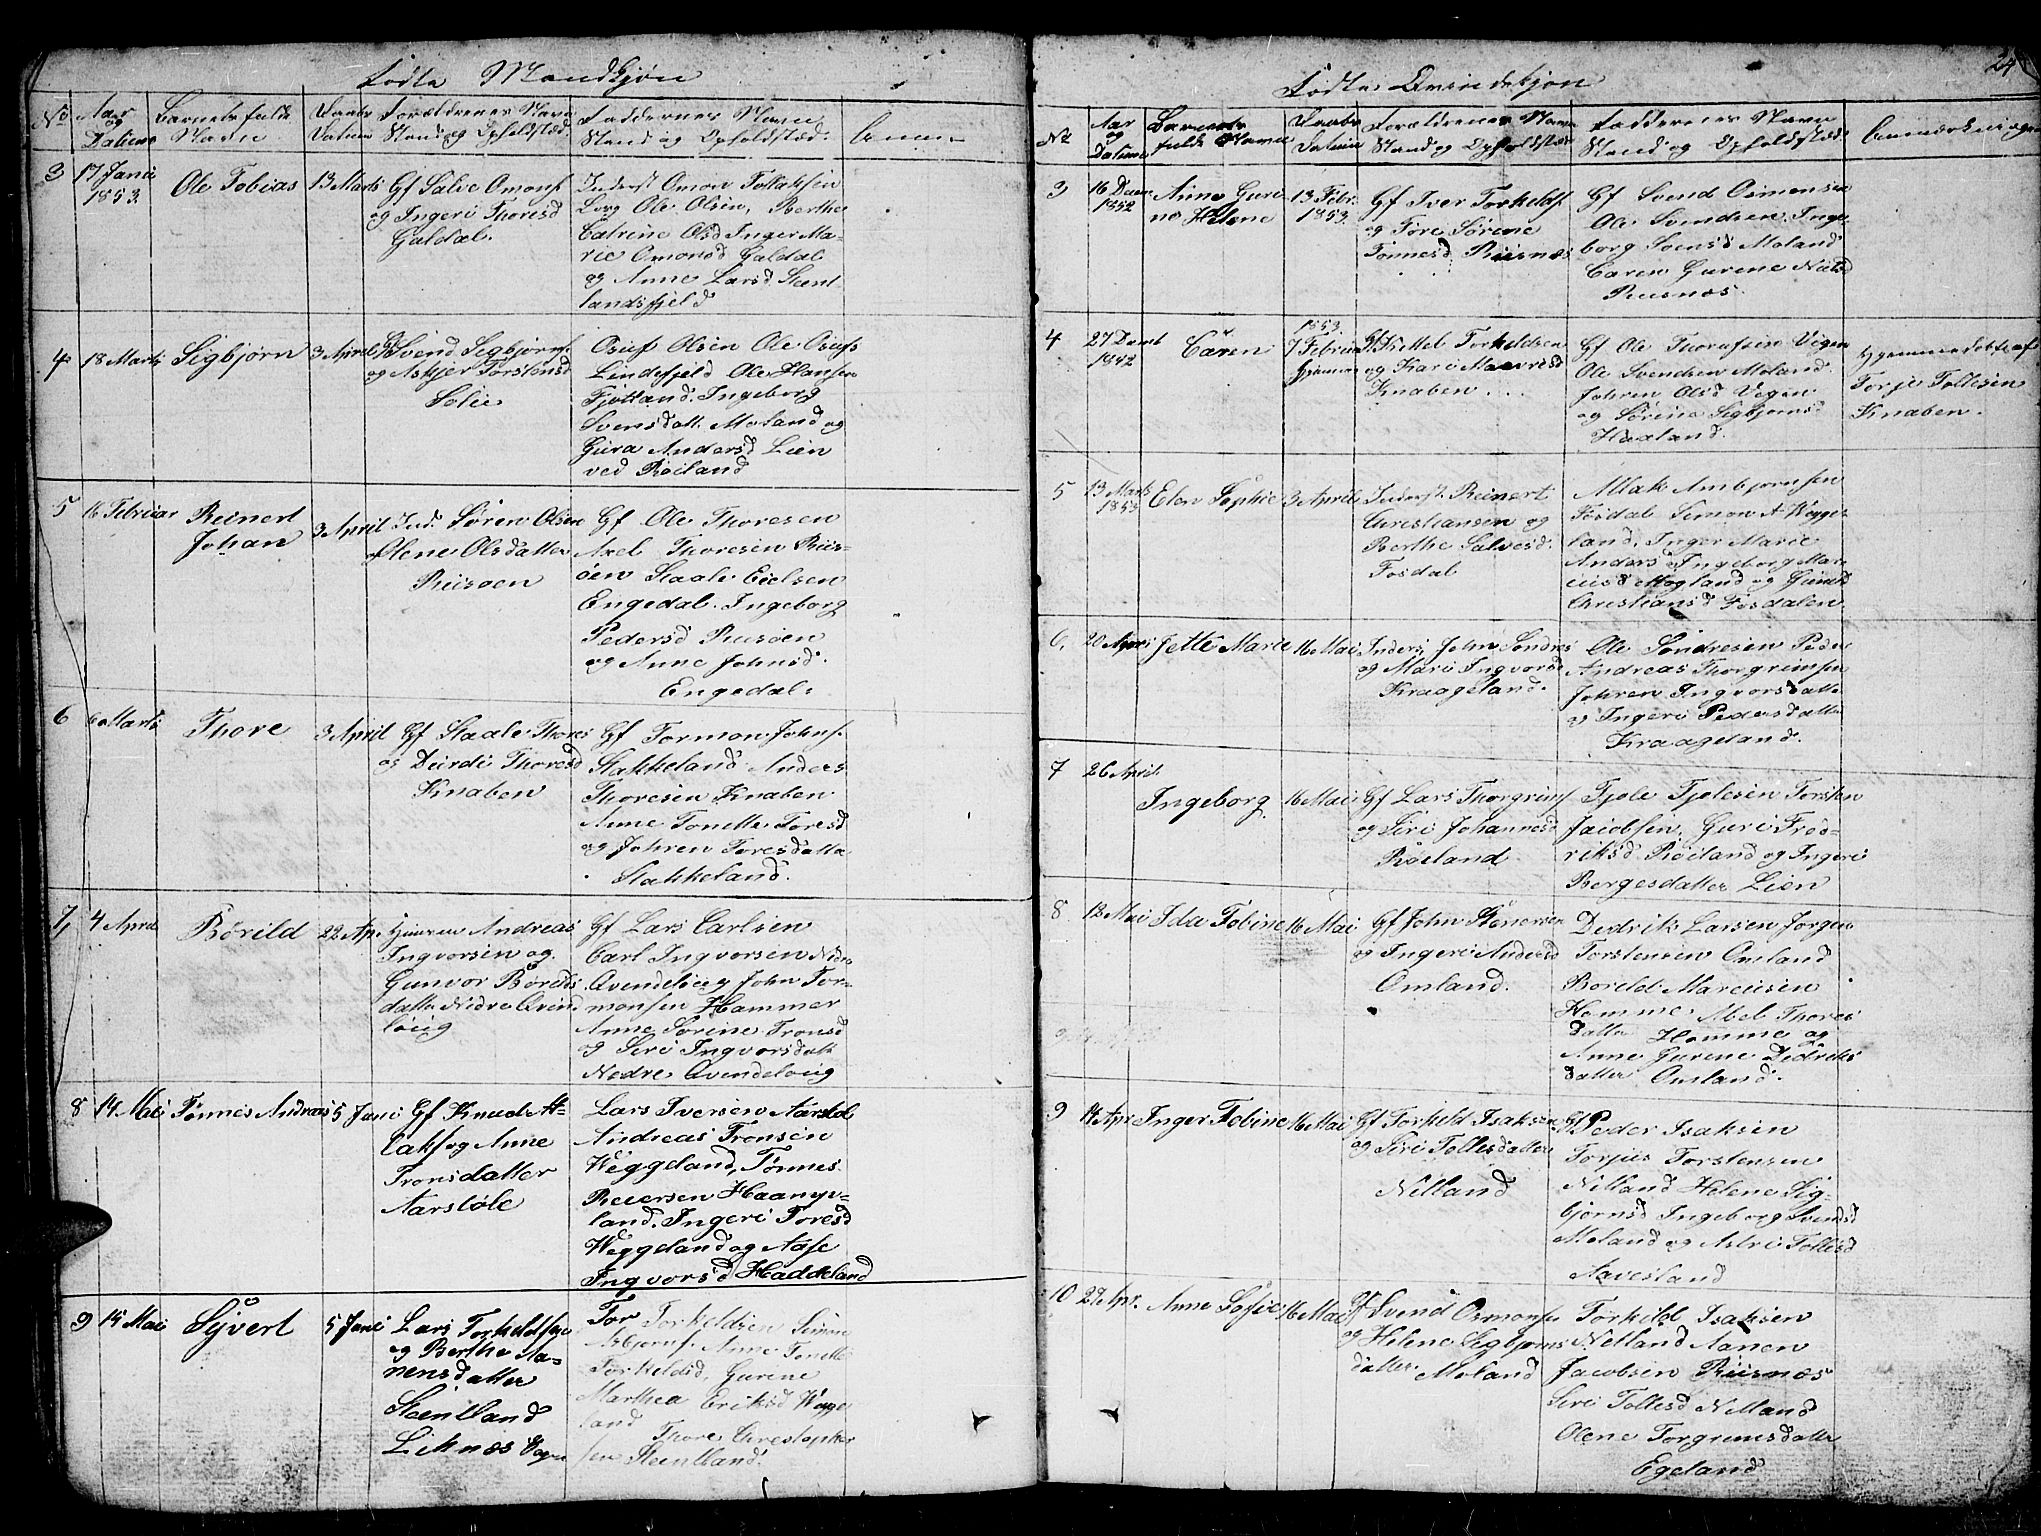 Fødte Mandkjøn
No
Aar og Datum
Barnets fulde Navn
Daabs Datum
Forældrenes Navn Stand og Opholdsted.
Faddernes Navn Stand og Opholdsted.
Anm.
3
17 Janu
1853.
Ole Tobias
13 Marts
Gf Salve Omonf
og Ingeri Thoresd
Galdal.
Inderst Omon Tollaksen
Borg Ole Olsen, Berthe
Catrine Olsd Inger Ma-
rie Omonsd Galdal
og Anne Larsd Steent
landsfjeld
4
18 Marts
Sigbjørn
3 April
Gf Svend Segbjørnf.
og Askjer Torstensd
Solie
Osuf Olsen Ole Osufs
Lindefjeld Ole Hansen
Fjotland. Ingeborg
Svensdatt. Moland og
Gura Andersd Lien
ved Røiland
5
16 Februar
Reinert
Johan
3 April
Ind. Søren Olsen
og Olene Olsdatter
Riisøen
Gf Ole Thoresen
Axel Thoresen Riis-
øen Staale Eielsen
Engedal. Ingeborg
Pedersd Riisøen
og Anne Johnsd.
Engedal.
6
6 Marts
Thore
3 April
Gf Staale Thores
og Deirdi Thoresd
Knaben
Gf Tormon Johnf.
Stakkeland Anders
Thoresen Knaben
Anne Tonette Toresd
og Johren Toresdatte
Stakkeland.
7,
4 April
Børild
22 Ap.
Huusm Andreas
Ingvorsen og
Gunvor Børilds
datte Nedre Qvin
løeig
Gf Lars Carlsen
Carl Ingvorsen Nedre
Qvendeløeig John Tor-
monsen Hammer
Anne Sørine Tronsd
og Siri Ingvorsdatt
Nedre Qvendeloeig
8
14 Mai
Tønnes Andreas
5 Juni
Gf Knud At-
lakf og Anne
Tronsdatter
Aarstøle
Lars Iversen Aarstøl
Andreas Tronsen
Weggeland, Tønnes
Reiersen Haanyv-
land. Ingeri Toresd
Weggeland og Aase
Ingvorsd Haddeland
9
15 Mai
Syvert
5 Juni
Lars Torkeldsen
og Berthe Aa-
nensdatter
Steentland
Liknæs Sogn
Tor Torkeldsen Simon
Asbjørnf. Anne Tonette
Torkeldsd, Gurene
Marthea Eriksd Wegge
land Thore Christopher
sen Steentland.
24
Fødte Qvindekjøn
No
Aar og Datum
Barnets fulde Navn
Daabs Datum
Forældrenes Navn Stand og Opholdsted
Faddernes Navn Stand og Opholdsted
Anmærkninger
3,
16 Decem
1852
Anne Guri
ne Helene
13 Febr.
1853.
Gf Iver Torkeldf
og Tore Sørine
Tønnesd Riisnæs
Gf Svend Osmonsen
Ole Svendsen Inge-
borg Svensd Moland
Caren Gurene Neilsd
Riisnæs.
4
27 Decmb
1842
Caren
1853.
7 Februar
Hjemme
Gf Kittel Torkeldsen
og Kari Maavresd
Knaben
Gf Ole Thorufsen Vegen
Ole Svendsen Moland
Johren Olsd Vegen
og Sørine Segbjørnsd
Haaland.
Hjemmedøbt af
Torje Tollesen
Knaben.
5
13 Marts
1853
Elen Sophie
3 April
Inderst. Reinert
Christiansen og
Berthe Salvesd.
Fosdal
Atlak Anbjørnsen
Fosdal Simon A Wegge
land, Inger Marie
Anders Ingeborg Mar
cusd Mogland og Gunild
Christiansd Fosdalen
6,
20 April
Jette Marie
16 Mai
Inders, John Søndres
og Mari Ingvorsd
Kraageland.
Ole Søndresen Peder
Andreas Thorgrimsen
Johren Ingvorsdatte
og Ingeri Pedersdatte
Kraageland.
7
26 April
Ingeborg
16 Mai
Gf Lars Thorgrimf
og Siri Johannesd
Røiland
Tjøle Tjølesen Torsten
Jacobsen. Guri Fred-
riksd Røiland og Ingeri
Borgesdatter Lien
8
12 Mai
Ida Tobine
16 Mai
Gf John Steenersen
og Ingeri Andersd
Omland.
Dedrik Larsen Jørgen
Torstensen Omland
Borild Marcusen
Homme, Abel Thores
datte Homme og
Anne Gurene Dedriks
datter Omland.
9
14 Apr
Inger Tobine
16 Mai
Gf Torkeld Isaksen
og Siri Tollesdatter
Netland
Gf Peder Isaksen
Torjus Torstensen
Netland Helene Sig-
bjørnsd Ingeborg Svendsd
Moland og Astri Tollesd
Aavesland
10
24 Apr.
Anne Sofie
16 Mai
Gf Svend Osmonsen
og Helene Segbjørns
datter. Moland
Torkild Isaksen
Netland Aanen
Jacobsen Riisnæs
Siri Tollesd Netland
Olene Torgrimsdatter
Egeland